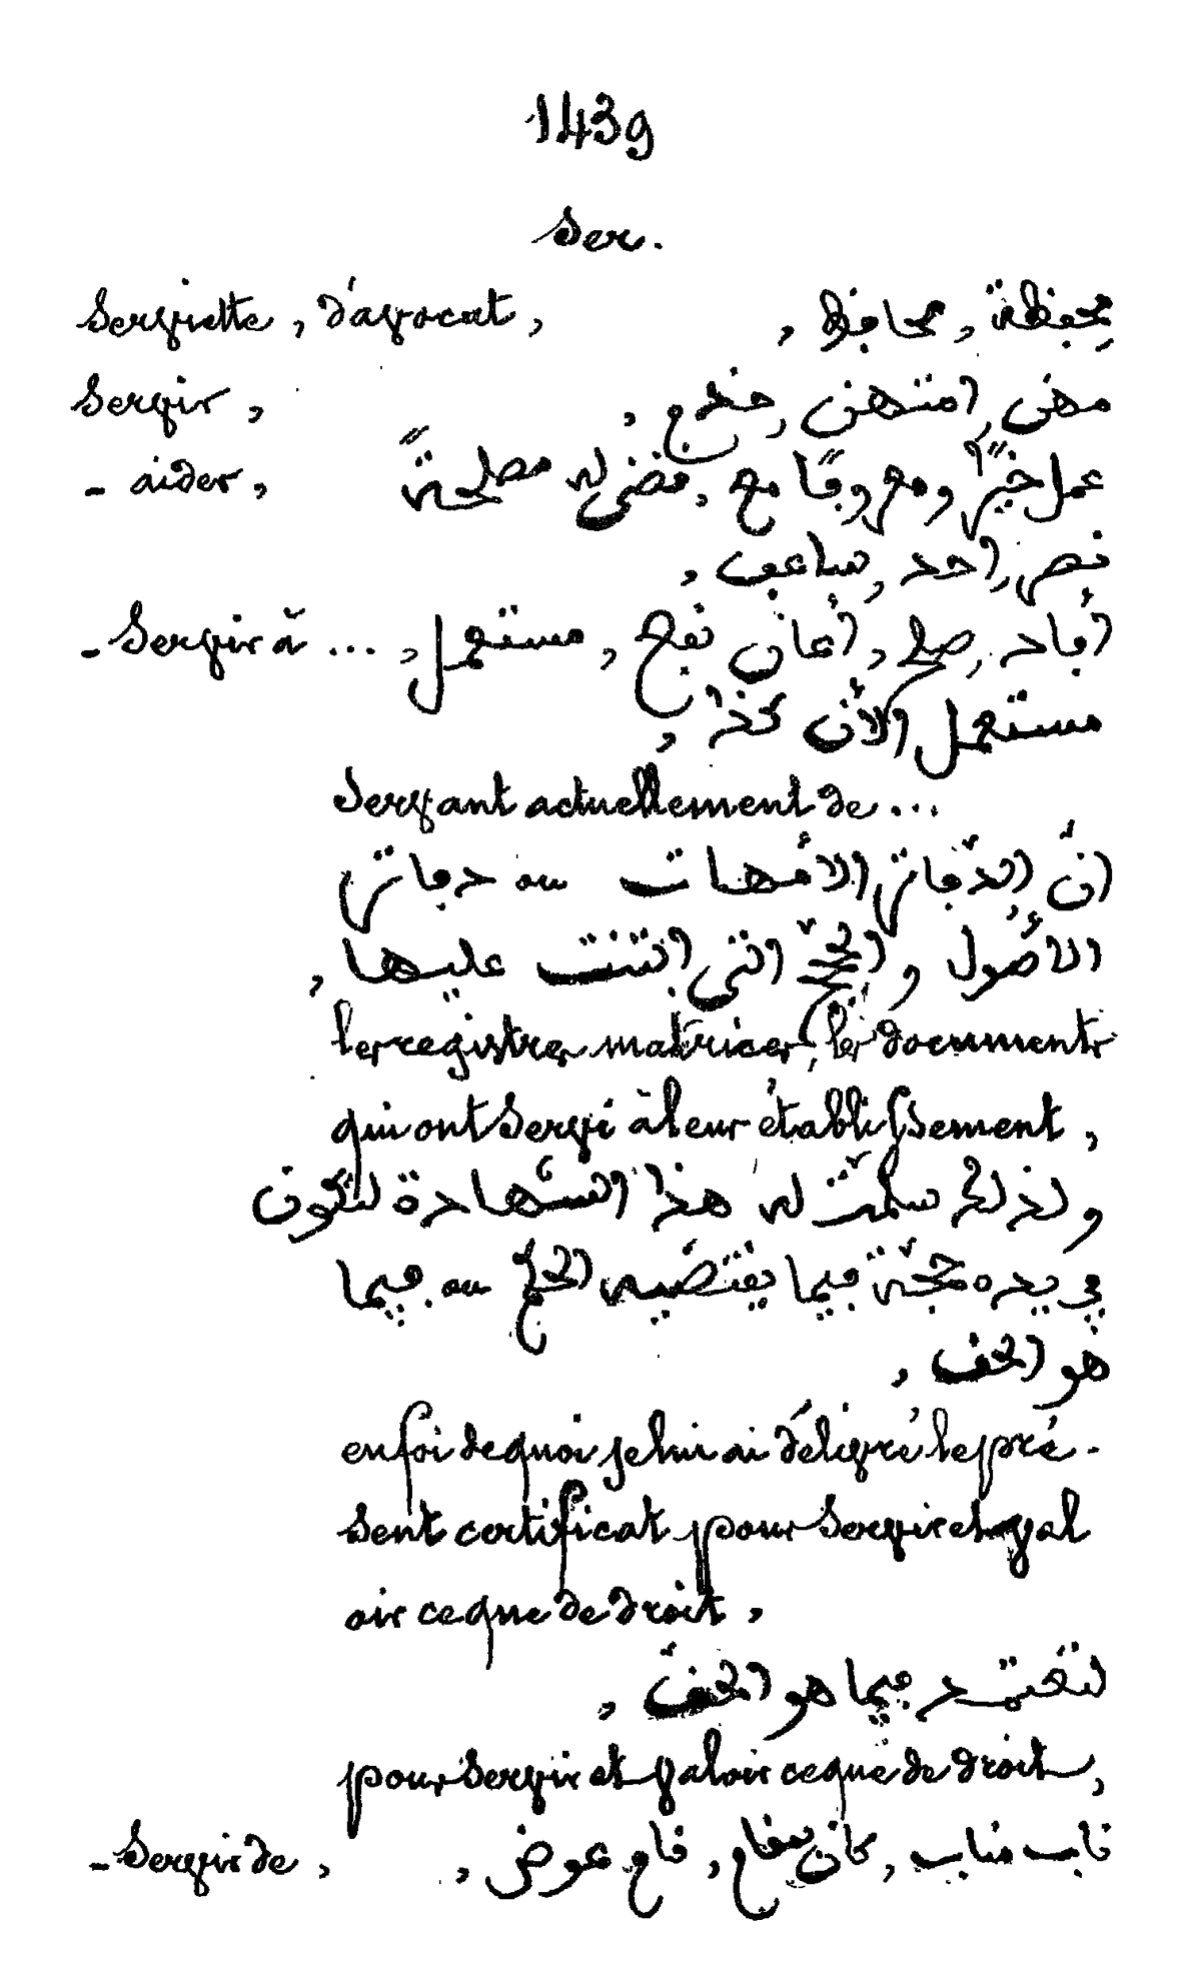 1439
Ser.
Serviette, d'avocat, محفظة, محافظ,
Servir, مهن, امتهن, خدم,
- aider, عمل خيرًا ومعروفًا مع, قضى له مصلحةً
نصر احد, ساعف,
- Servir à ..., أفاد, صلح, أعان نفع, مستعمل,
مستعمل الأن كذا,
Servant actuellement de...
انّ الدّفاتر الامّهات ou دفاتر
الاصُول والحجج التي انبنت عليها,
les registres matrices, les documents
qui ont servi à leur établissement,
ولذلك سلّمتُ له هذا الشّهادة لتكون
في يده حجّة فيما يقتضيه الحكم ou فيما
هو الحق,
en foi de quoi je lui ai délivré le pré-
sent certificat pour servir et val
oir ce que de droit,
لتعتمد فيما هو الحق,
pour servir et valoir ce que de droit,
- Servir de, ناب مناب, كان بمقام, قام عوض,